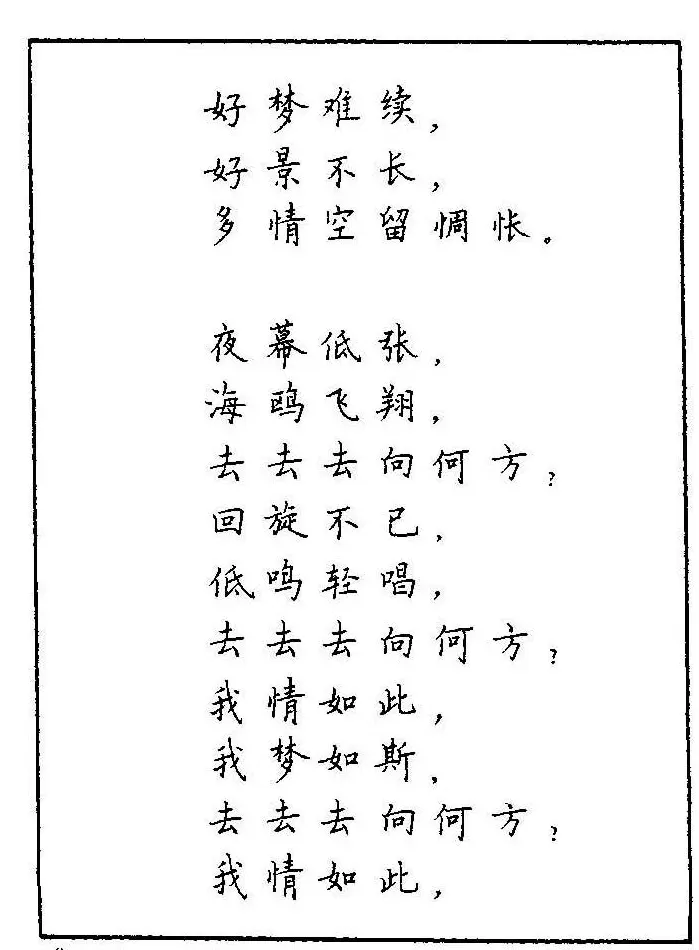 好梦难续，
好景不长，
多情空留惆怅。
夜幕低张，
海鸥飞翔，
去去去向何方？
回旋不已，
低鸣轻唱，
去去去向何方？
我情如此，
我梦如斯，
去去去向何方？
我情如此，